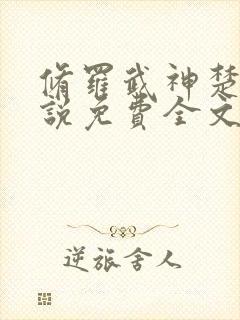 脩羅武神楚
說免費全文
逆旅舍人